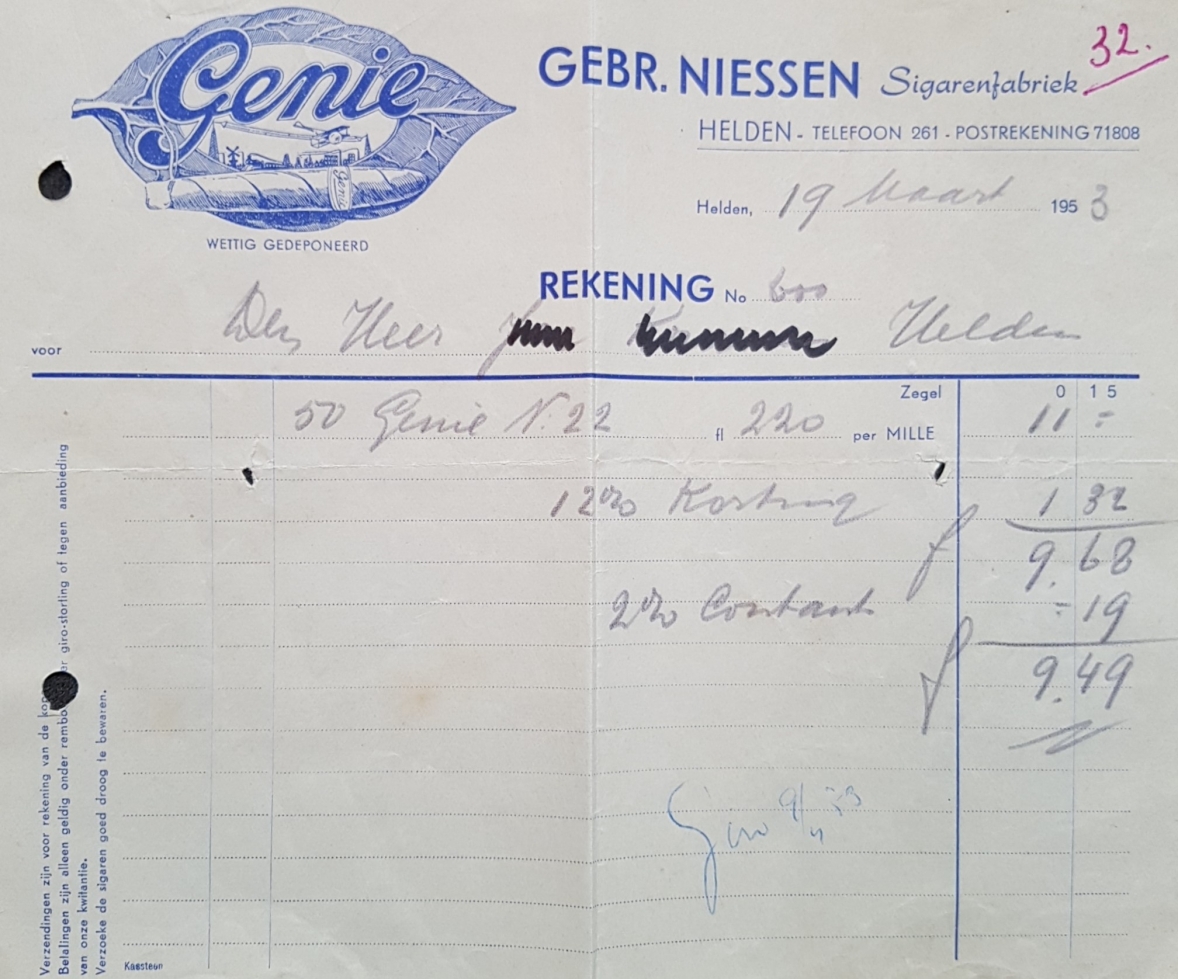 Genie
Genie
WETTIG GEDEPONEERD
GEBR. NIESSEN Sigarenfabriek
32.
HELDEN - TELEFOON 261 - POSTREKENING 71808
Helden, 19 Maart 1953
REKENING No 600
voor Den Heer Helden
Zegel 0 15
50 Genie N. 22 fl 220 per MILLE 11 =
12% Korting 1 32
f 9.68
2% Contant - 19
f 9.49
Giro 9/4 53
Verzendingen zijn voor rekening van de
Betalingen zijn alleen geldig onder giro-storting of tegen aanbieding
van onze kwitantie.
Verzoeke de sigaren goed droog te bewaren.
Kassteen